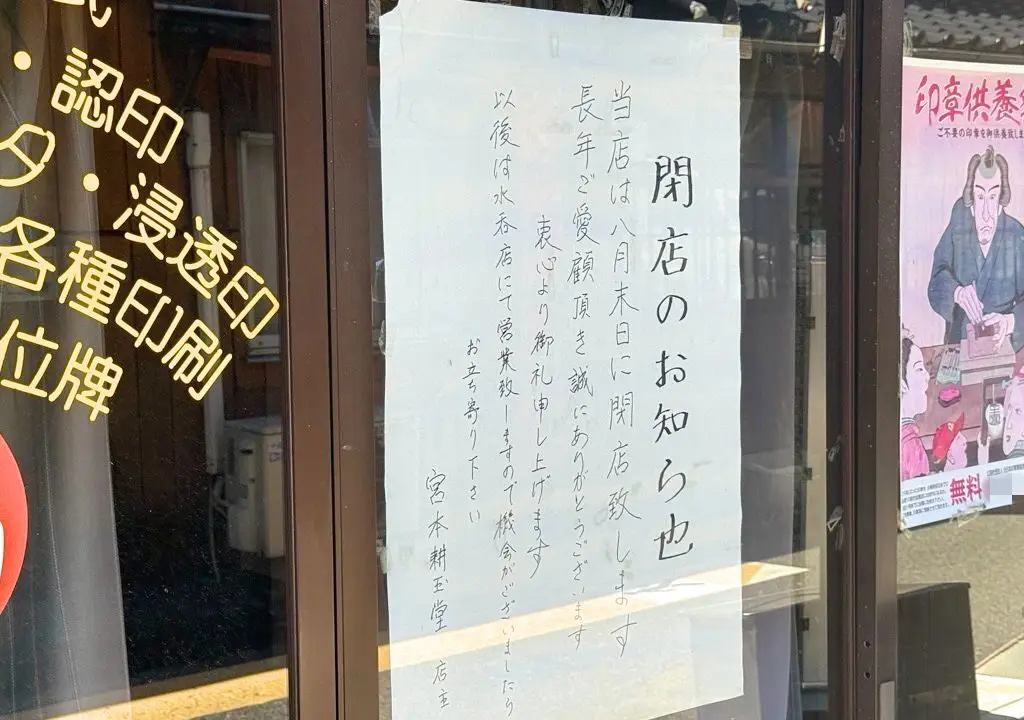 閉店のお知ら也
当店は八月末日に閉店致します
長年ご愛顧頂き誠にありがとうございます
衷心より御礼申し上げます
以後は水呑店にて営業致しますので機会がございましたら
お立ち寄り下さい
宮本耕玉堂 店主
・認印
タ・浸透印
各種印刷
位牌
印章供養
ご不要の印章を御供養致しま
無料